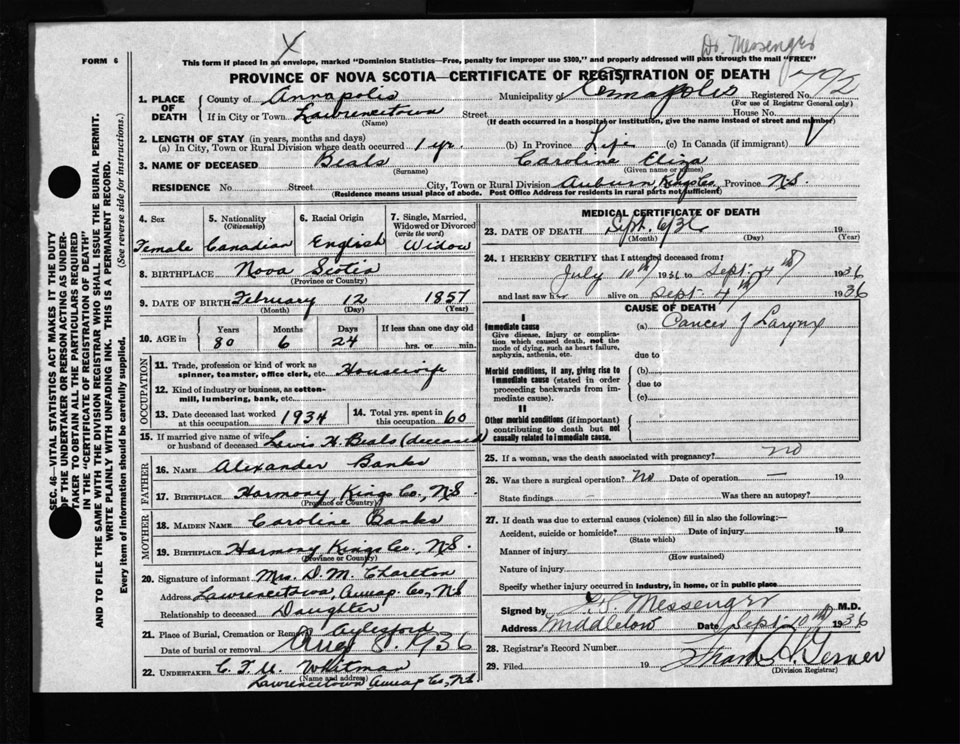 Dr. Messenger
FORM 6
This form if placed in an envelope, marked "Dominion Statistics—Free, penalty for improper use $300," and properly addressed will pass through the mail "FREE"
PROVINCE OF NOVA SCOTIA—CERTIFICATE OF REGISTRATION OF DEATH
1. PLACE OF DEATH
County of Annapolis Municipality of Annapolis Registered No.
(For use of Registrar General only)
If in City or Town Lawrencetown Street House No.
(Name) (If death occurred in a hospital or institution, give the name instead of street and number)
2. LENGTH OF STAY (in years, months and days)
(a) In City, Town or Rural Division where death occurred 1 yr. (b) In Province Life (c) In Canada (if immigrant)
3. NAME OF DECEASED Beals Caroline Eliza
(Surname) (Given name or names)
RESIDENCE No. Street City, Town or Rural Division Auburn, Kings Co. Province N.S.
(Residence means usual place of abode. Post Office Address for residents in rural parts not sufficient)
SEC. 46—VITAL STATISTICS ACT MAKES IT THE DUTY
OF THE UNDERTAKER OR PERSON ACTING AS UNDER-
TAKER TO OBTAIN ALL THE PARTICULARS REQUIRED
IN THE "CERTIFICATE OF REGISTRATION OF DEATH"
AND TO FILE THE SAME WITH THE DIVISION REGISTRAR WHO SHALL ISSUE THE BURIAL PERMIT.
WRITE PLAINLY WITH UNFADING INK. THIS IS A PERMANENT RECORD.
Every item of information should be carefully supplied. (See reverse side for instructions.)
4. Sex 5. Nationality 6. Racial Origin 7. Single, Married, Widowed or Divorced
(Citizenship) (write the word)
Female Canadian English Widow
8. BIRTHPLACE Nova Scotia
(Province or Country)
9. DATE OF BIRTH February 12 1857
(Month) (Day) (Year)
10. AGE in Years Months Days If less than one day old
80 6 24 hrs. or min.
OCCUPATION
11. Trade, profession or kind of work as
spinner, teamster, office clerk, etc. Housewife
12. Kind of industry or business, as cotton-
mill, lumbering, bank, etc.
13. Date deceased last worked at this occupation 1934 14. Total yrs. spent in this occupation 60
15. If married give name of wife or husband of deceased Lewis H. Beals (deceased)
FATHER
16. NAME Alexander Banks
17. BIRTHPLACE Harmony, Kings Co., N.S.
(Province or Country)
MOTHER
18. MAIDEN NAME Caroline Banks
19. BIRTHPLACE Harmony Kings Co., N.S.
(Province or Country)
20. Signature of informant Mrs. D. M. Charlton
Address Lawrencetown, Annap. Co., N.S
Relationship to deceased Daughter
21. Place of Burial, Cremation or Removal Aylesford
Date of burial or removal Aug 8. 1936
22. UNDERTAKER C. T. U. Whitman
(Name and address)
Lawrencetown Annap Co., N.S
MEDICAL CERTIFICATE OF DEATH
23. DATE OF DEATH Sept. 6/36 19
(Month) (Day) (Year)
24. I HEREBY CERTIFY that I attended deceased from:
July 10th 1936 to Sept. 4th 1936
and last saw her alive on Sept 4th 1936
CAUSE OF DEATH
I
Immediate cause (a) Cancer of Larynx
Give disease, injury or complica-
tion which caused death, not the
mode of dying, such as heart failure,
asphyxia, asthenia, etc. due to
Morbid conditions, if any, giving rise to (b)
immediate cause (stated in order due to
proceeding backwards from im-
mediate cause). (c)
II
Other morbid conditions (if important)
contributing to death but not
causally related to immediate cause.
25. If a woman, was the death associated with pregnancy? no
26. Was there a surgical operation? No Date of operation 19
State findings Was there an autopsy?
27. If death was due to external causes (violence) fill in also the following:—
Accident, suicide or homicide? Date of injury 19
(State which)
Manner of injury
(How sustained)
Nature of injury
Specify whether injury occurred in industry, in home, or in public place
Signed by Messenger M.D.
Address Middleton Date Sept 10th 1936
28. Registrar's Record Number
29. Filed 19
(Division Registrar)